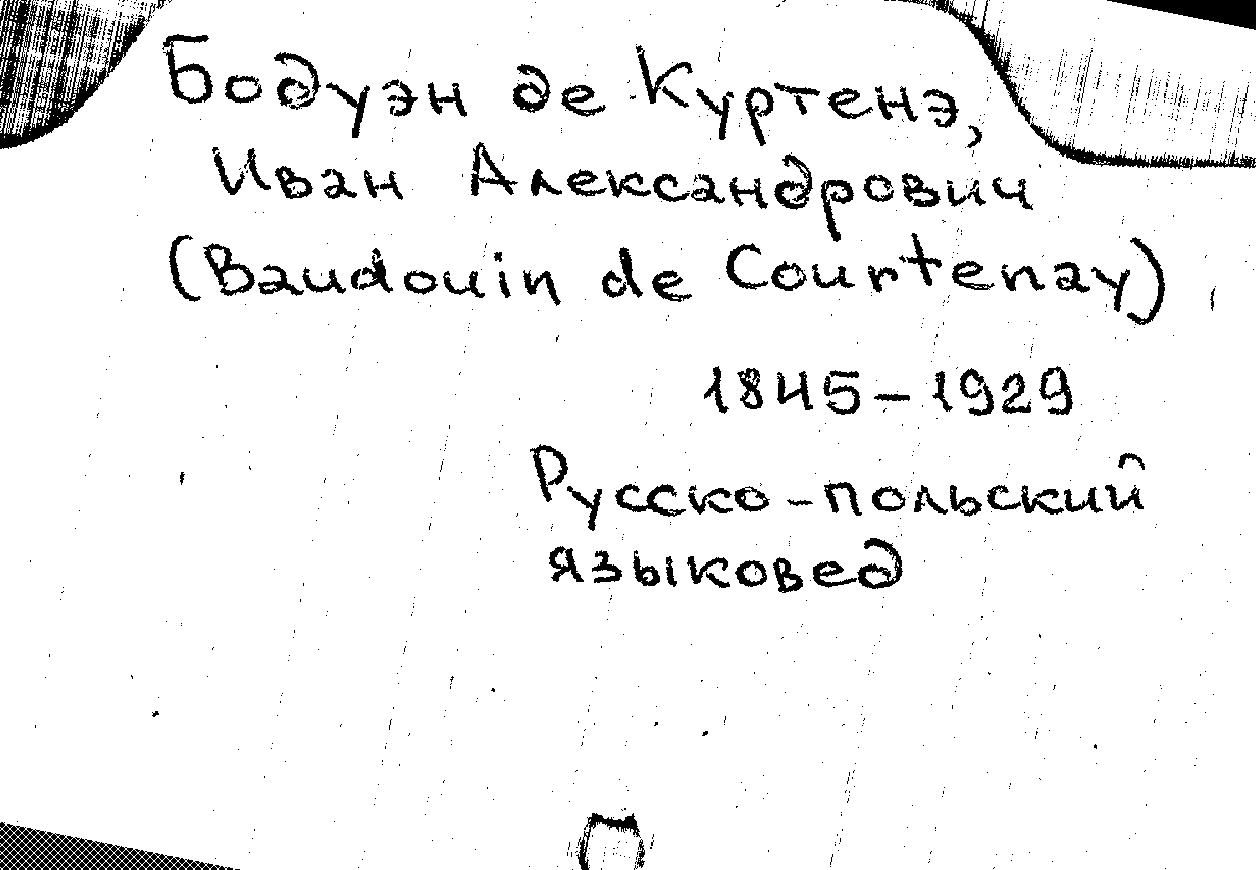 Бодуэн де Куртенэ,
Иван Александрович
(Baudouin de Courtenay)
1845–1929
Русско-польский
языковед